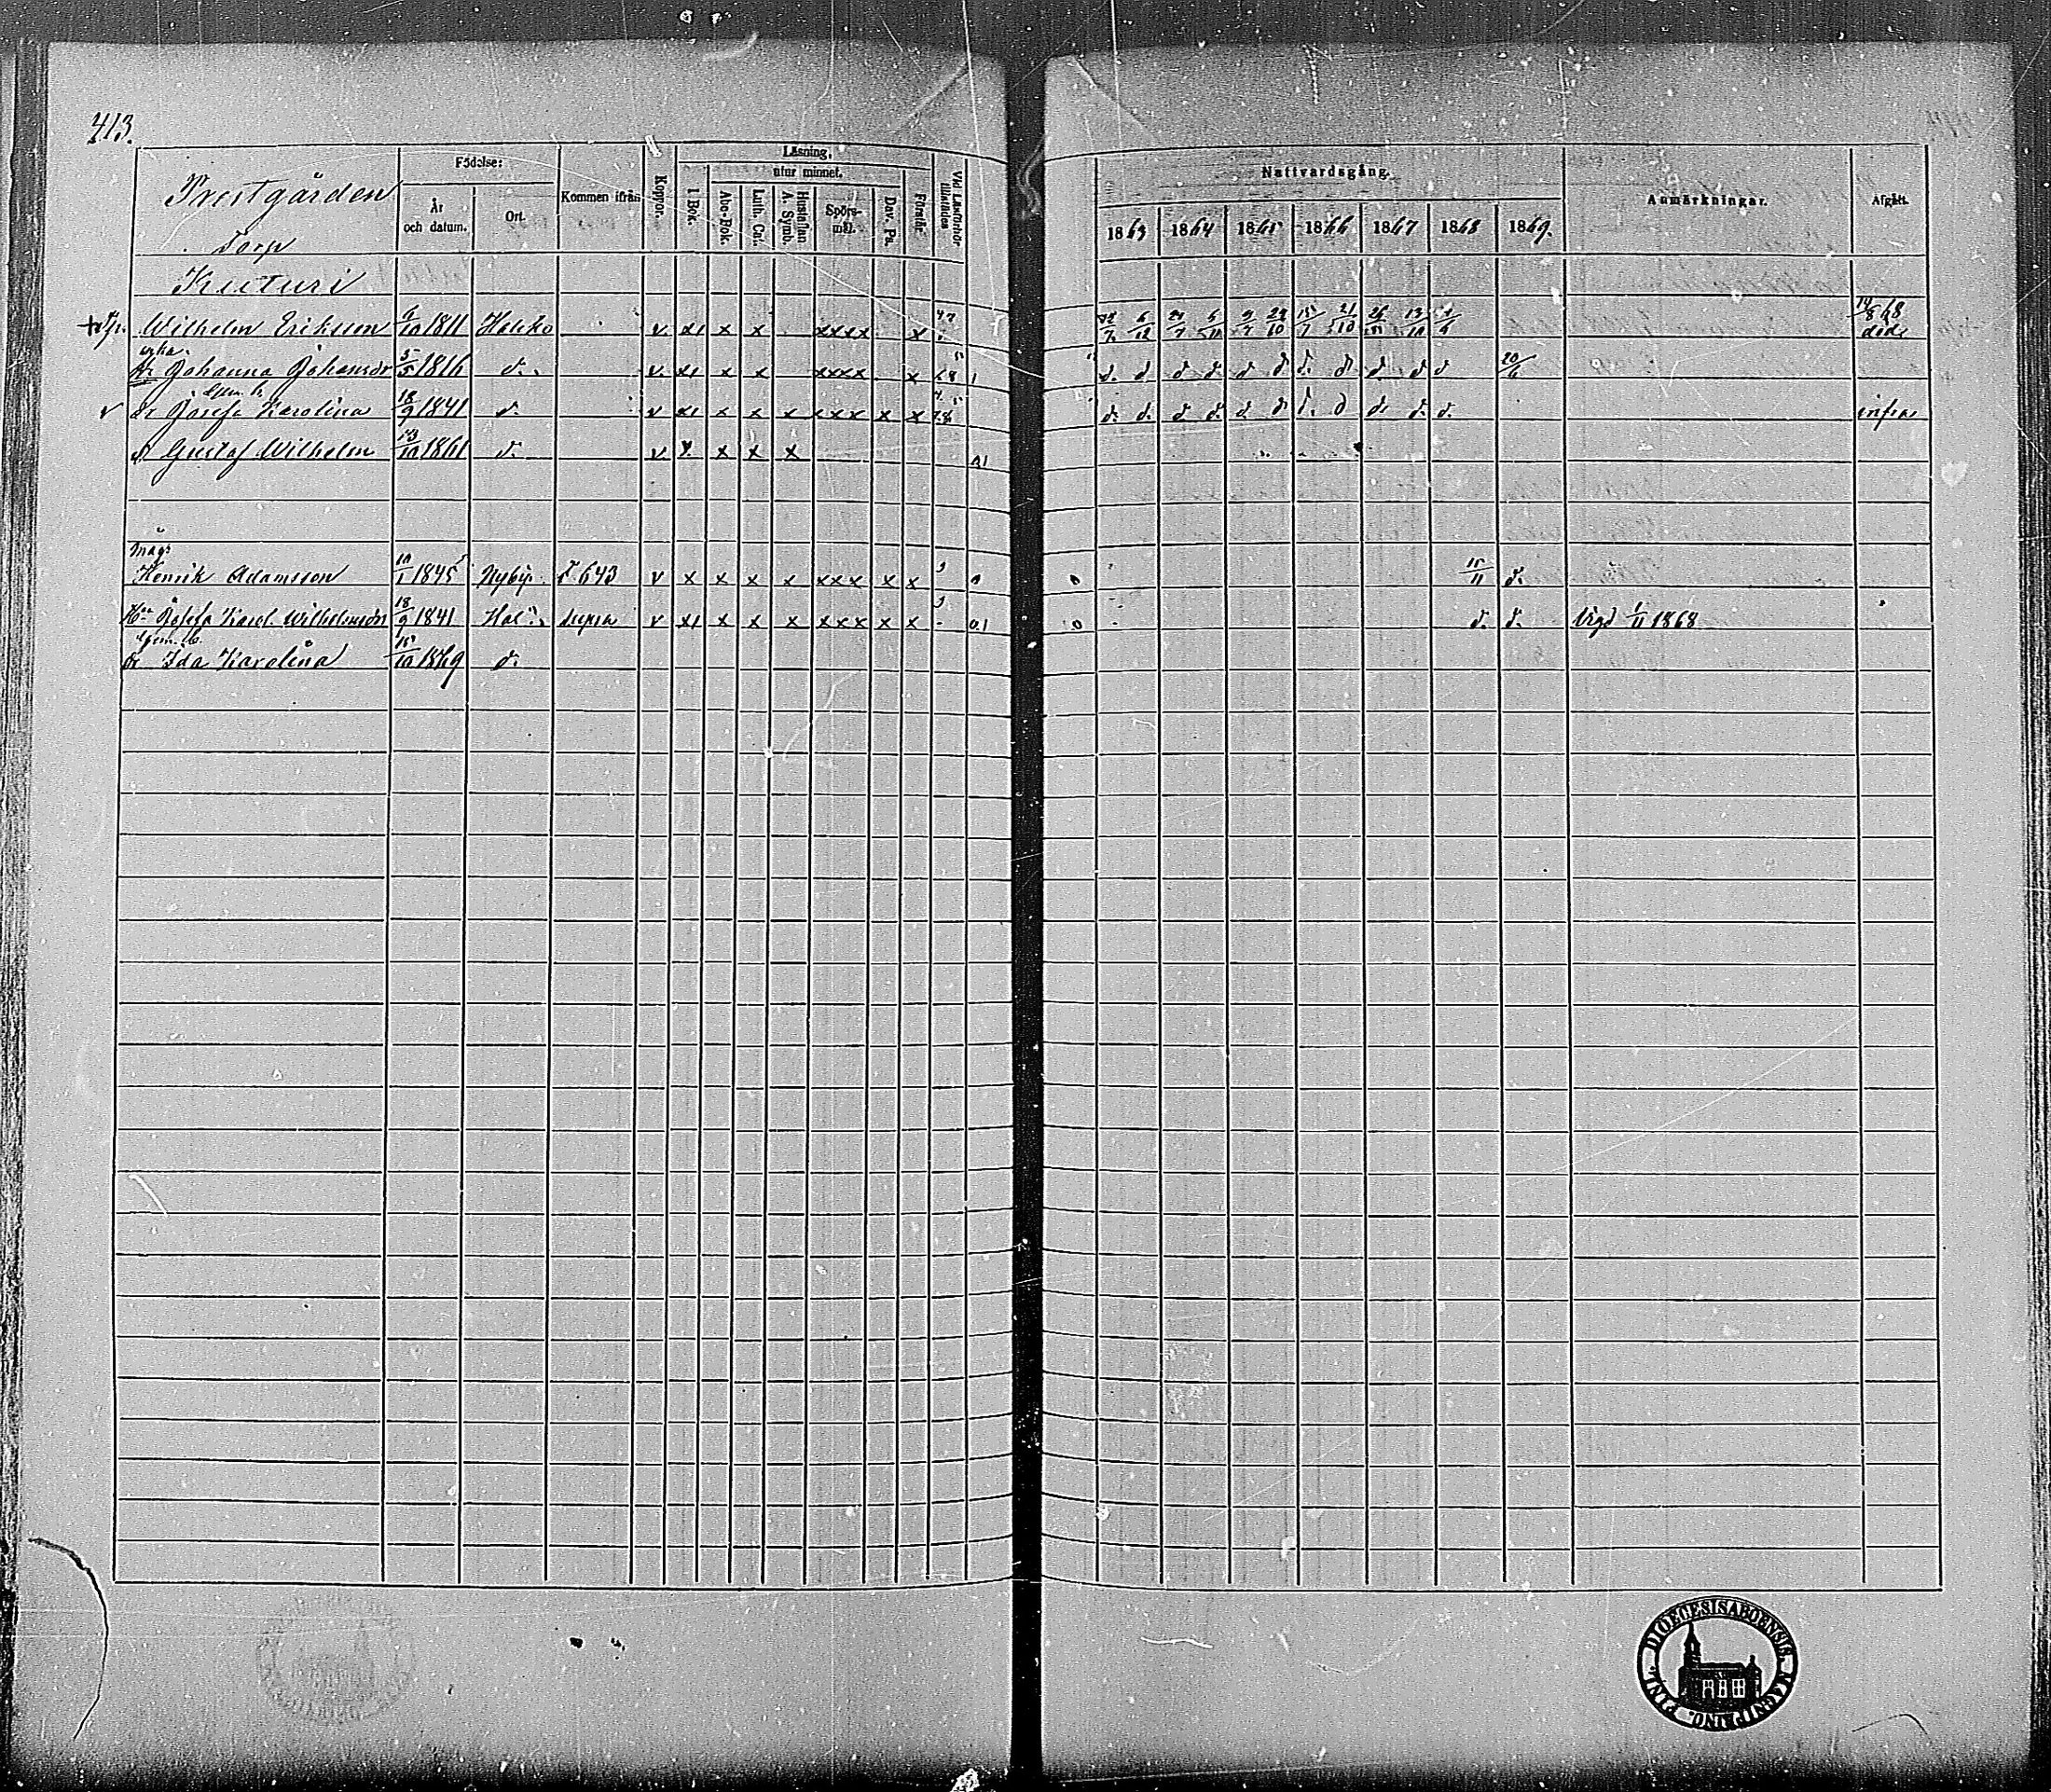 413.
Prestgården
Torp
Kuturi
Födelse:
År och datum.
Ort.
Kommen ifrån
Koppor.
Läsning,
utur minnet.
I Bok.
Abc-Bok.
Luth. Cat.
Hustaflan A. Symb.
Spörs-mål.
Dav. Ps.
Förstår.
Vid Läsförhör tillstädes
Nattvardsgång.
1863 1864 1865 1866 1867 1868 1869.
Anmärkningar.
Afgått.
Wilhelm Eriksson 6/10 1811 Haliko v x x x xxxx x 14/8 68 död
enka
Johanna Johansdr 5/5 1816 d. v x x x xxxx x 20/6
v dr Josefa Karolina 18/9 1841 d. v x x x x xxx x x infra
s. Gustaf Wilhelm 13/10 1861 d. v x x x x
Måg:
Henrik Adamsson 10/1 1845 Nyby. 643 v x x x x xxx x x 15/11 d.
Hu Josefa Karol. Wilhelmsdr 18/9 1841 Hal: supra v x x x x xxx x x d. d. Vigd 1/11 1868
dr Ida Karolina 15/10 1869 d.
DIOECESIS ABOENSIS MAGNI PRINC. FINL.